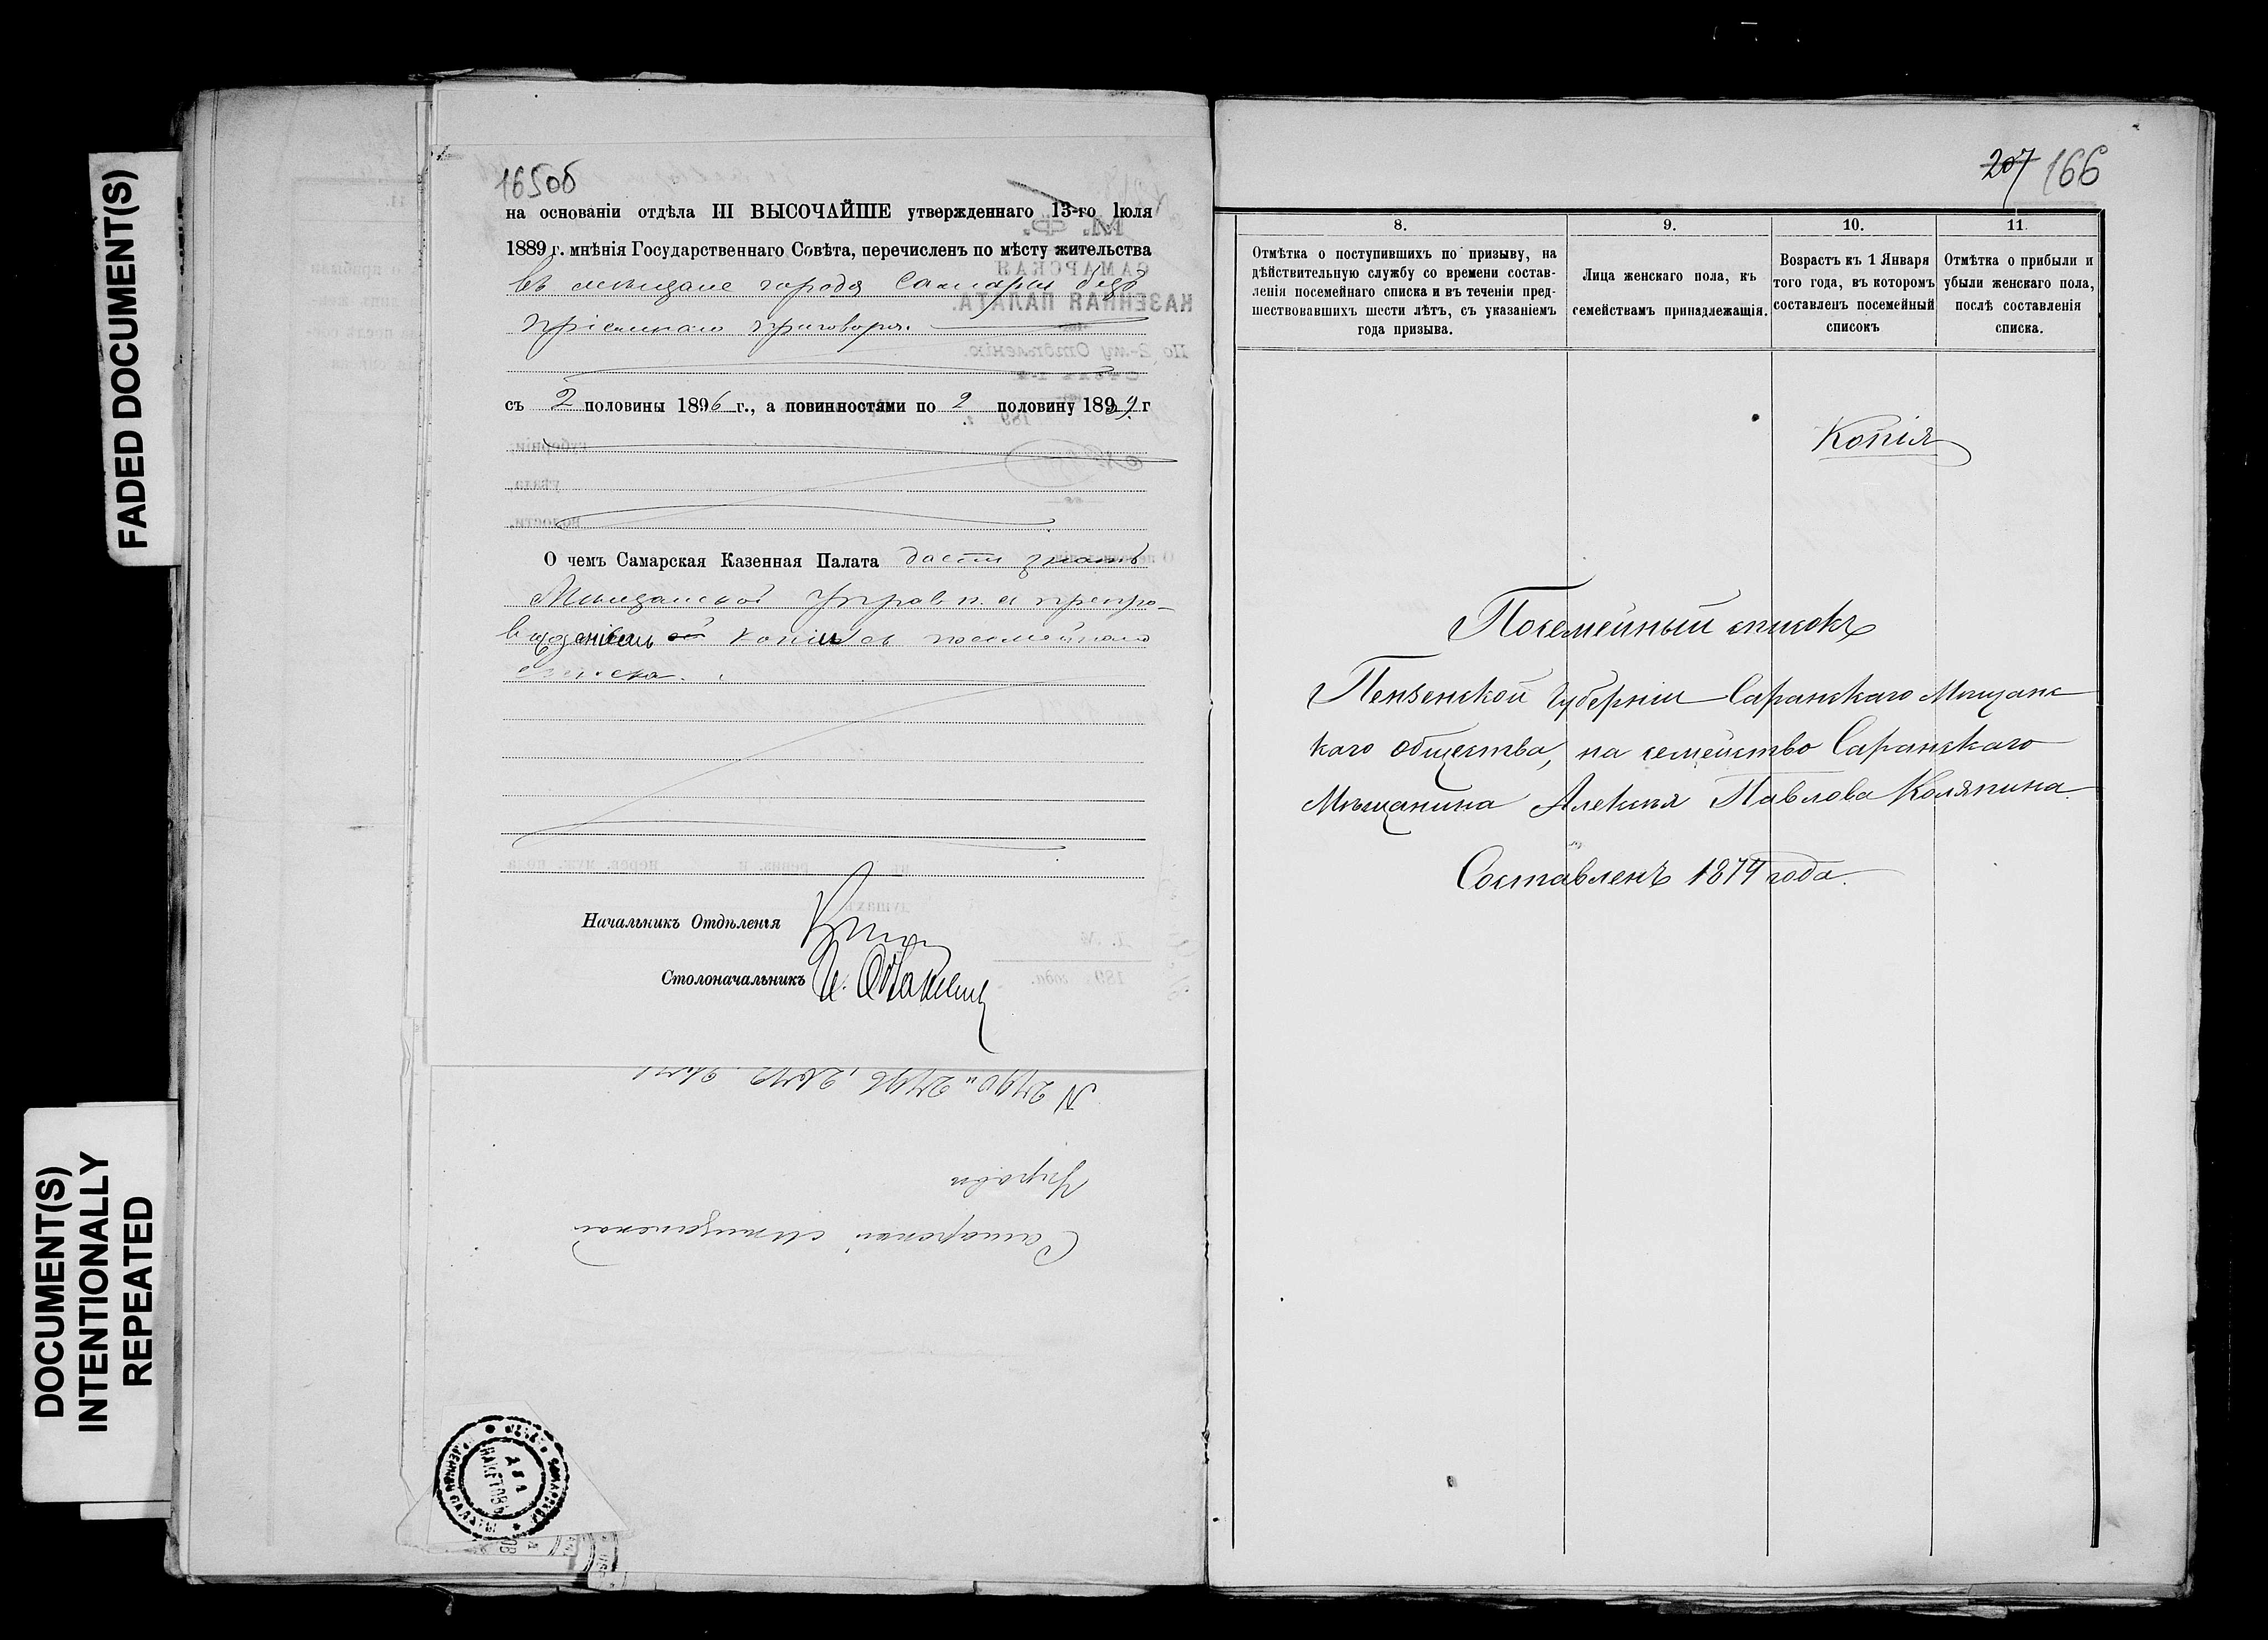 FADED DOCUMENT(S)
DOCUMENT(S)
INTENTIONALLY
REPEATED
165об
на основаніи отдѣла III ВЫСОЧАЙШЕ утвержденнаго 13-го Іюля
1889 г. мнѣнія Государственнаго Совѣта, перечисленъ по мѣсту жительства
въ мѣщане города Самары безъ
пріемнаго приговора.
съ 2 половины 1896 г., а повинностями по 2 половину 189 г
О чемъ Самарская Казенная Палата даетъ знать
Мѣщанской Управѣ препро-
вожденіемъ копіи съ посемейнаго
списка.
Начальникъ Отдѣленія
Столоначальникъ
Управѣ
Самарской Мѣщанской
207 166
8.
Отмѣтка о поступившихъ по призыву, на
дѣйствительную службу со времени состав-
ленія посемейнаго списка и въ теченіи пред-
шествовавшихъ шести лѣтъ, съ указаніемъ
года призыва.
9.
Лица женскаго пола, къ
семействамъ принадлежащія.
10.
Возрастъ къ 1 Января
того года, въ которомъ
составленъ посемейный
списокъ
11.
Отмѣтка о прибыли и
убыли женскаго пола,
послѣ составленія
списка.
Копія
Посемейный списокъ
Пензенской Губерніи Саранскаго Мѣщанс
каго общества, на семейство Саранскаго
Мѣщанина Алексѣя Павлова Коляпина.
Составленъ 1874 года.